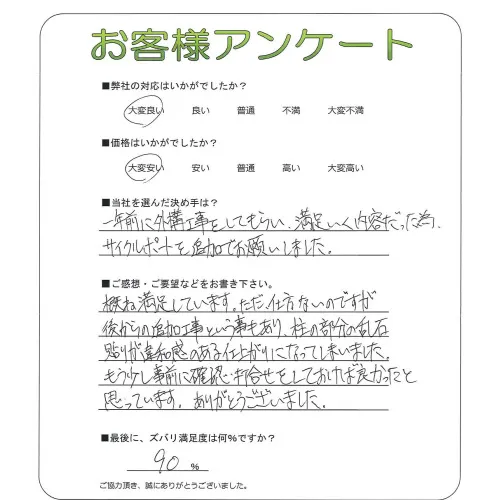 お客様アンケート
■弊社の対応はいかがでしたか？
大変良い 良い 普通 不満 大変不満
■価格はいかがでしたか？
大変安い 安い 普通 高い 大変高い
■当社を選んだ決め手は？
一年前に外構工事をしてもらい、満足いく内容だった為、
サイクルポートを追加でお願いしました。
■ご感想・ご要望などをお書き下さい。
概ね満足しています。ただ、仕方ないのですが
後からの追加工事という事もあり、柱の部分の乱石
貼りが違和感のある仕上がりになってしまいました。
もう少し事前に確認・打合せをしておけば良かったと
思っています。ありがとうございました。
■最後に、ズバリ満足度は何％ですか？
90 %
ご協力頂き、誠にありがとうございました。